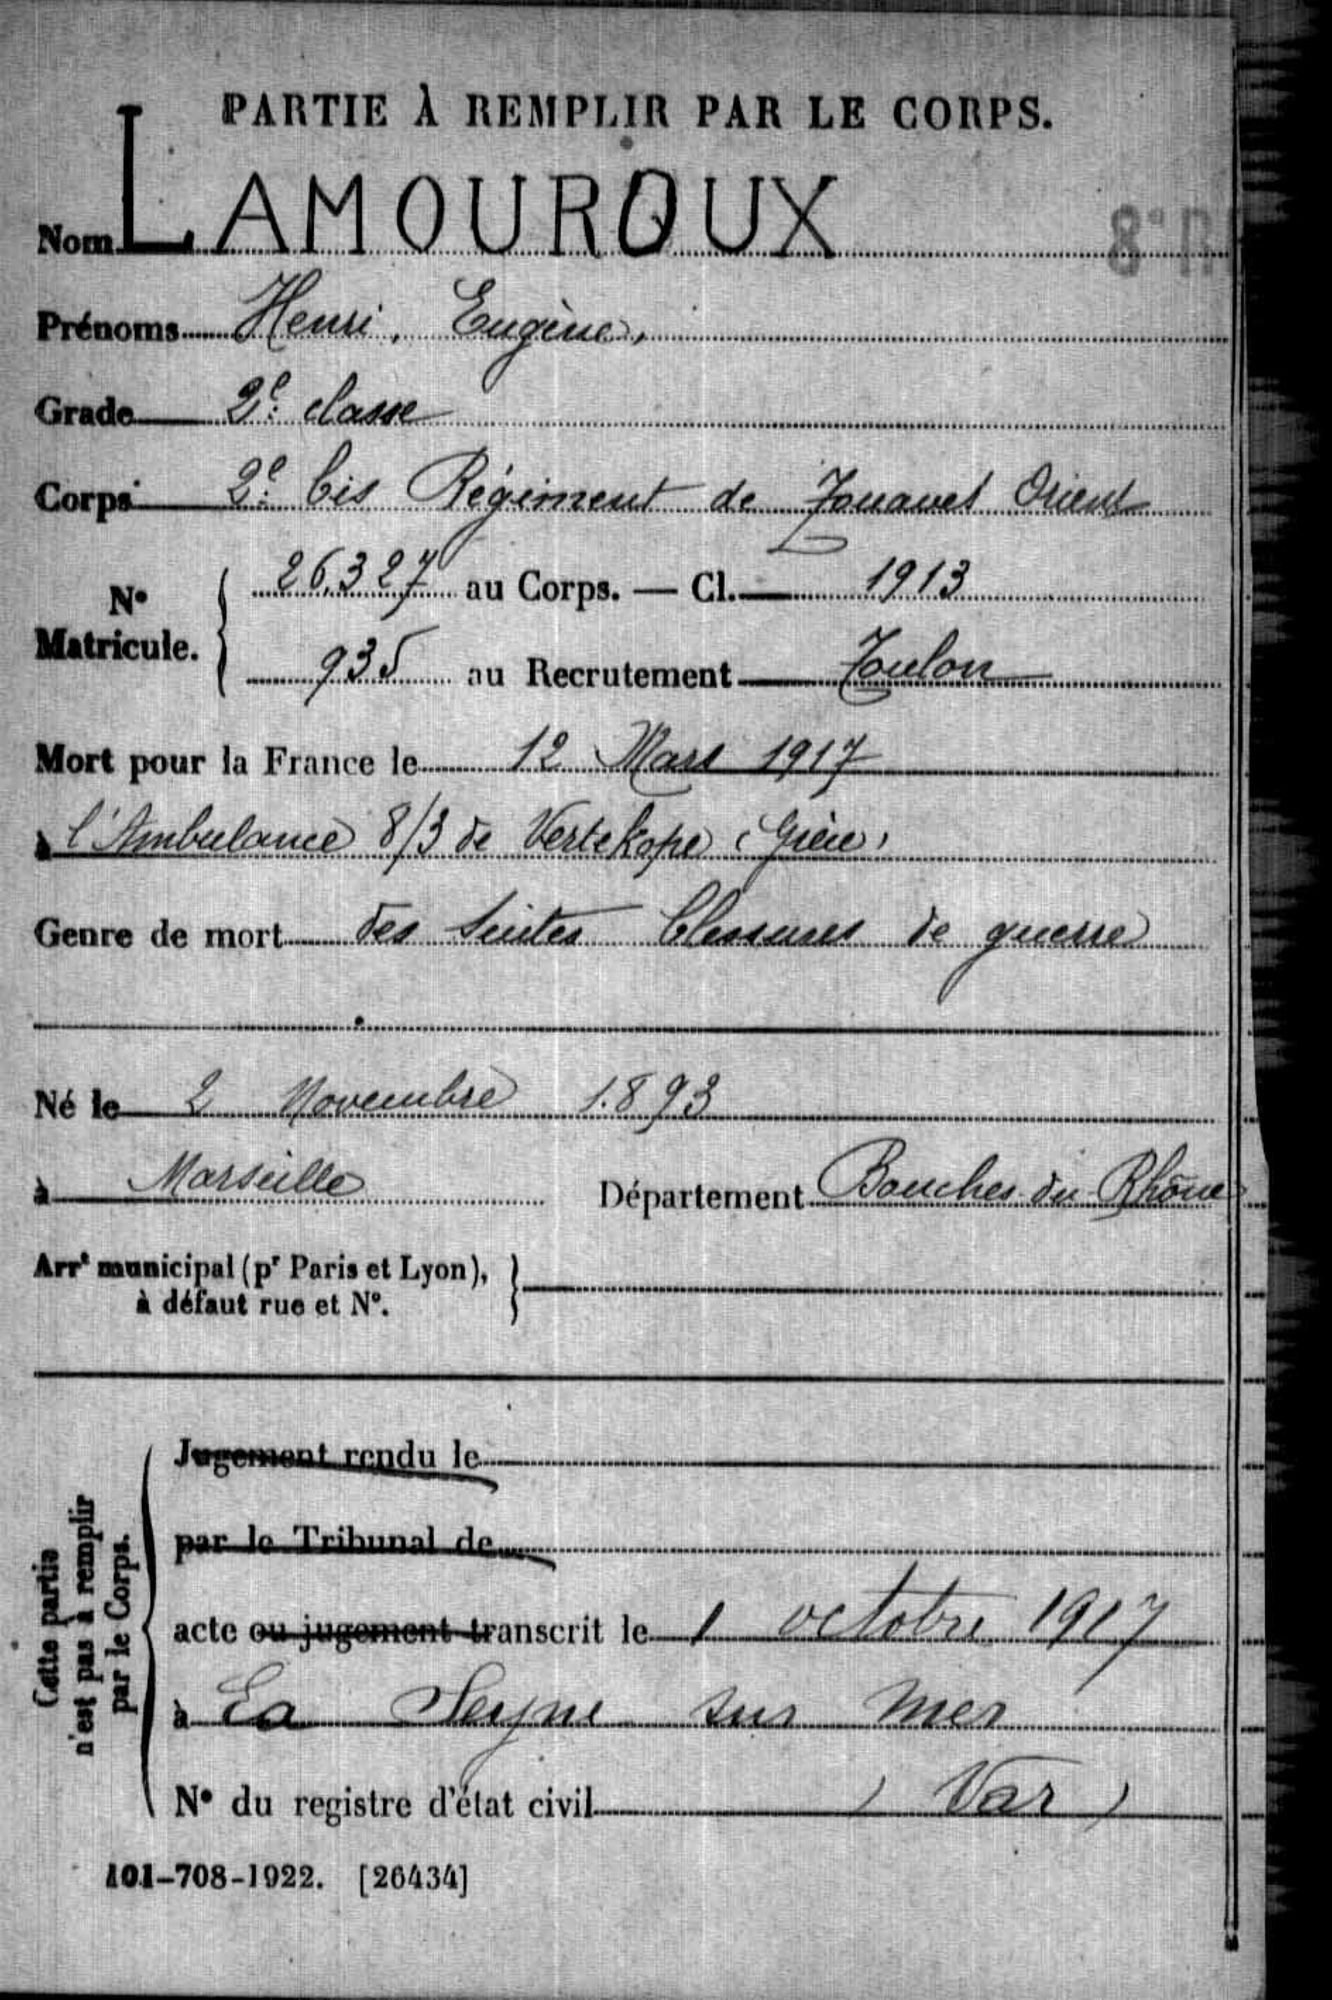 PARTIE À REMPLIR PAR LE CORPS.
Nom LAMOUROUX
Prénoms Henri, Eugène,
Grade 2e classe
Corps 2e bis Régiment de Zouaves Orient
N° Matricule. 26.327 au Corps. — Cl. 1913
935 au Recrutement Toulon
Mort pour la France le 12 Mars 1917
à l'Ambulance 8/3 de Vertekope (Grèce)
Genre de mort des suites blessures de guerre
Né le 2 Novembre 1893
à Marseille Département Bouches du Rhône
Arrt municipal (pr Paris et Lyon),
à défaut rue et N°.
Cette partie
n'est pas à remplir
par le Corps.
Jugement rendu le
par le Tribunal de
acte ou jugement transcrit le 1 octobre 1917
à La Seyne sur mer
N° du registre d'état civil (Var)
101-708-1922. [26434]